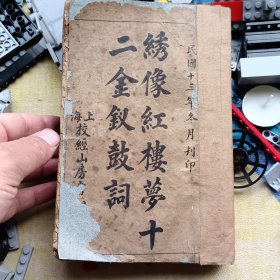 民國十三年冬月刊印
綉像紅樓夢十
二金釵鼓詞
上海校經山房